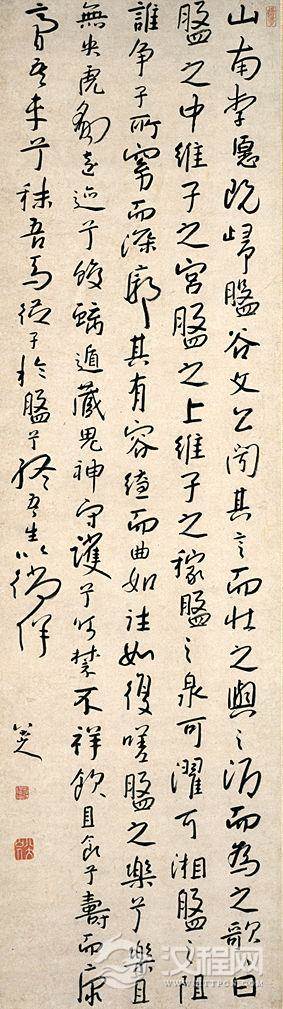 山南李愿既歸盤谷文公聞其言而壯之與之酒而為之歌曰
盤之中維子之宮盤之上維子之稼盤之泉可濯可湘盤之阻
誰爭子所窈而深廓其有容繚而曲如往如復嗟盤之樂兮樂且
無央虎豹遠迹兮蛟螭遁藏鬼神守護兮呵禁不祥飲且食兮壽而康
膏吾車兮秣吾馬從子於盤兮終吾生以徜徉
八大山人
汉程网
HTTPCN.COM